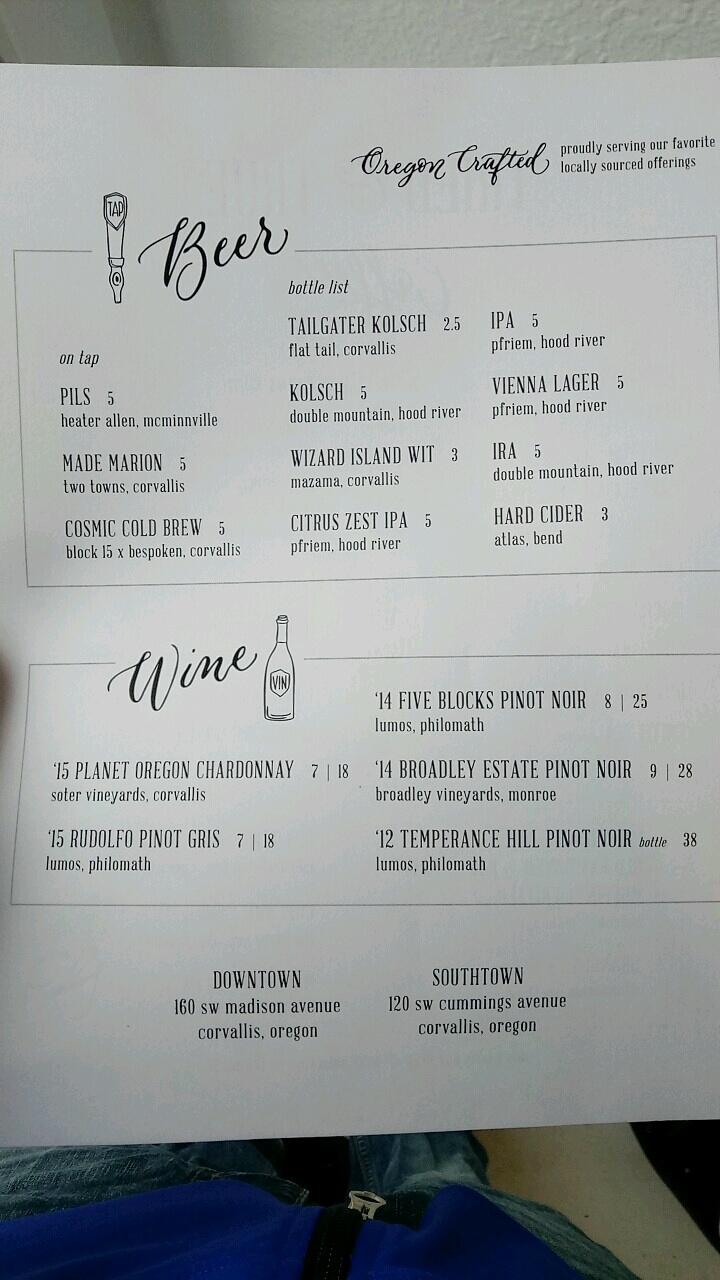 Oregon Crafted
proudly serving our favorite
locally sourced offerings
TAP
Beer
on tap
PILS 5
heater allen, mcminnville
MADE MARION 5
two towns, corvallis
COSMIC COLD BREW 5
block 15 x bespoken, corvallis
bottle list
TAILGATER KOLSCH 2.5
flat tail, corvallis
KOLSCH 5
double mountain, hood river
WIZARD ISLAND WIT 3
mazama, corvallis
CITRUS ZEST IPA 5
pfriem, hood river
IPA 5
pfriem, hood river
VIENNA LAGER 5
pfriem, hood river
IRA 5
double mountain, hood river
HARD CIDER 3
atlas, bend
Wine
VIN
'15 PLANET OREGON CHARDONNAY 7 | 18
soter vineyards, corvallis
'15 RUDOLFO PINOT GRIS 7 | 18
lumos, philomath
'14 FIVE BLOCKS PINOT NOIR 8 | 25
lumos, philomath
'14 BROADLEY ESTATE PINOT NOIR 9 | 28
broadley vineyards, monroe
'12 TEMPERANCE HILL PINOT NOIR bottle 38
lumos, philomath
DOWNTOWN
160 sw madison avenue
corvallis, oregon
SOUTHTOWN
120 sw cummings avenue
corvallis, oregon